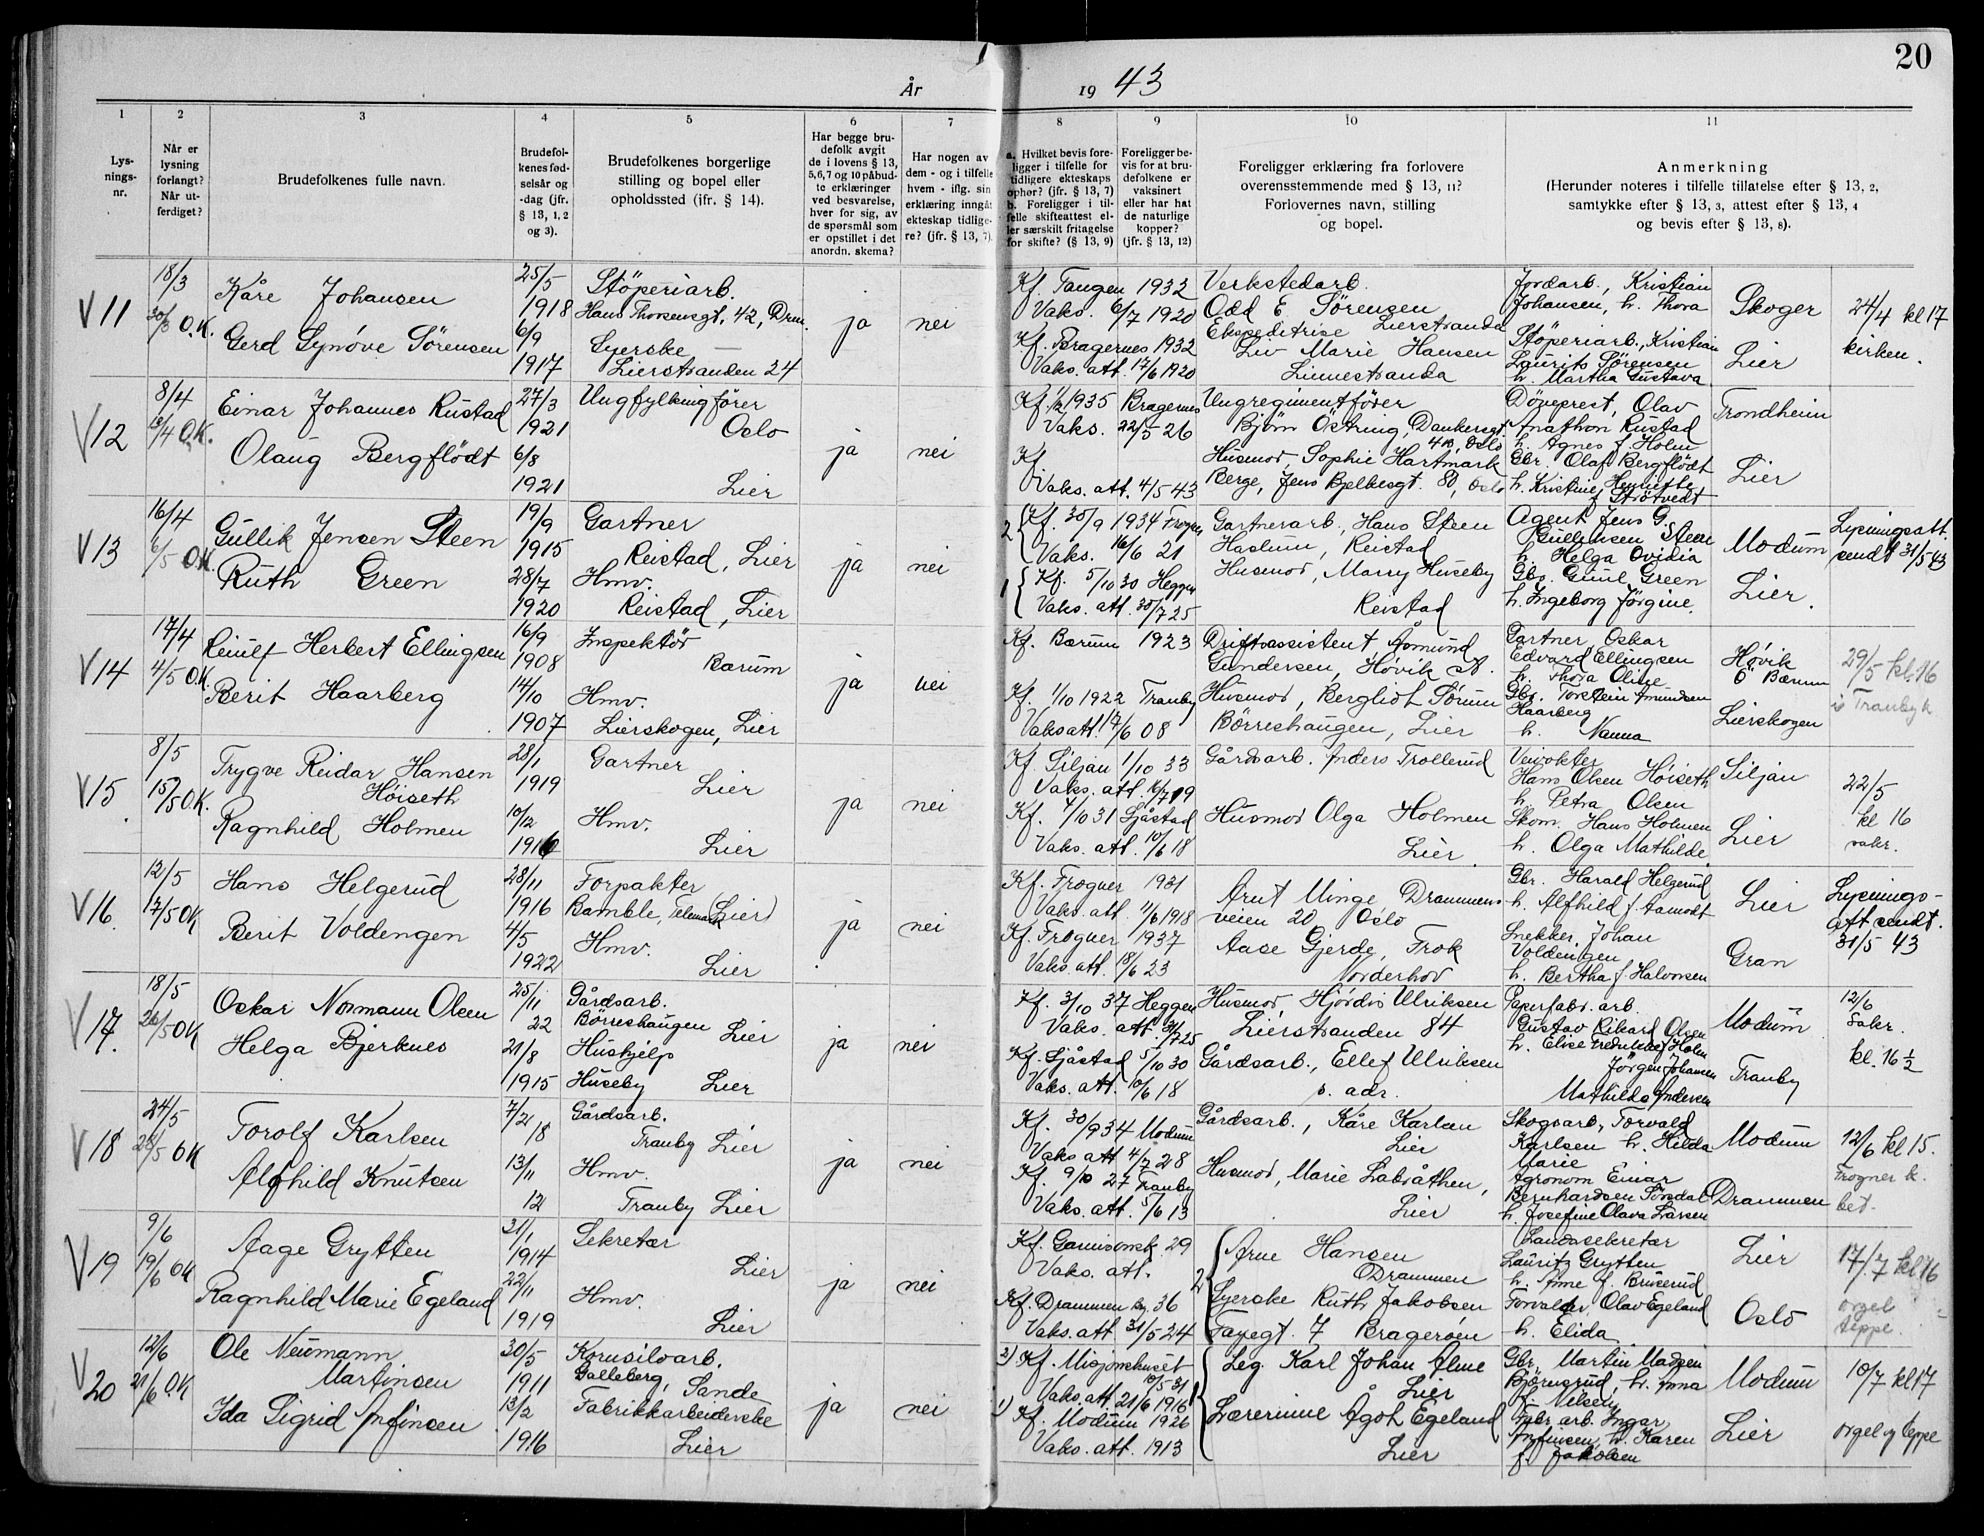 20
År 19 43
1 2 3 4 5 6 7 8 9 10 11
Lysningsnr.
Når er lysning forlangt? Når utferdiget?
Brudefolkenes fulle navn.
Brudefolkenes fødselsår og -dag (jfr. § 13, 1, 2 og 3).
Brudefolkenes borgerlige stilling og bopel eller opholdssted (jfr. § 14).
Har begge brudefolk avgitt de i lovens § 13, 5,6,7 og 10 påbudte erklæringer ved besvarelse, hver for sig, av de spørsmål som er opstillet i det anordn. skema?
Har nogen av dem - og i tilfelle hvem - iflg. sin erklæring inngått ekteskap tidligere? (jfr. § 13, 7).
a. Hvilket bevis foreligger i tilfelle for tidligere ekteskaps ophør? (jfr. § 13, 7) b. Foreligger i tilfelle skifteattest eller særskilt fritagelse for skifte? (§ 13, 9)
Foreligger bevis for at brudefolkene er vaksinert eller har hatt de naturlige kopper? (jfr. § 13, 12)
Foreligger erklæring fra forlovere overensstemmende med § 13, 11? Forlovernes navn, stilling og bopel.
Anmerkning (Herunder noteres i tilfelle tillatelse efter § 13, 2, samtykke efter § 13, 3, attest efter § 13, 4 og bevis efter § 13, 8).
V 11 18/3 30/3 O.K. Kåre Johansen 25/5 1918 Støperiarb. Hans Thorsensgt. 42, Drm. ja nei Kf. Tangen 1932 Vaks. 6/7 1920 Verkstedarb. Odd E. Sørensen Lierstranda Jordarb., Kristian Johansen, h. Thora Skoger 24/4 kl 17 kirken.
Gerd Synøve Sørensen 6/9 1917 Syerske — Lierstranden 24 Kf. Bragernes 1932 Vaks. att. 17/6 1920 Ekspeditrise Liv Marie Hansen Linnestranda Støperiarb., Kristian Laurits Sørensen h. Martha Gustava Lier
V 12 8/4 O.K. Einar Johannes Rustad 27/3 1921 Ungfylkingfører Oslo ja nei Kf. 1935 Bragernes Vaks. 22/5 26 Ungregimentfører Bjørn Østring, Oslo Døveprest, Olav Anathon Rustad h. Agnes f. Holm Trondheim
Olaug Bergflødt 6/8 1921 Lier Kf Vaks. att. 4/5 43 Husmor, Sophie Hartmark Berge, Jens Bjelkesgt. 80, Oslo Gbr. Olaf Bergflødt h. Kristine Henriette f Støtvedt Lier
V 13 16/4 6/5 O.K. Gullik Jensen Steen 19/9 1915 Gartner Reistad, Lier ja nei 2 Kf. 30/9 1934 Frogner Vaks. 16/6 21 Gartnerarb., Hans Steen Haslum, Reistad Agent Jens G. Gullensen Steen h. Helga Ovidia Modum Lysningsatt. sendt 31/5 43
Ruth Green 28/7 1920 Hmv. Reistad, Lier 1 Kf. 5/10 30 Heggen Vaks. att. 30/7 25 Husmor, Marry Huseby Reistad Gbr. Guul Green h. Ingeborg Jørgine. Lier.
V 14 17/4 4/5 O.K. Reiulf Herbert Ellingsen 16/9 1908 Inspektør Bærum ja nei Kf. Bærum 1923 Driftsassistent Åsmund Gundersen, Høvik st. Gartner Oskar Edvard Ellingsen h. Thora Olise Høvik Ö Bærum 29/5 kl. 16 i Tranby k
Berit Haarberg 14/10 1907 Hmv. Lierskogen, Lier Kf. 1/10 1922 Tranby Vaks att. 14/6 08 Husmor, Bergliot Sørum Børreshaugen, Lier Gbr. Torstein Amundsen Haarberg h. Nanna Lierskogen
V 15 8/5 15/5 O.K. Trygve Reidar Hansen Høiseth 28/1 1919 Gartner Lier ja nei Kf. Siljan 1/10 33 Vaks. att. 16/7 19 Gårdsarb. Anders Trollerud Veivokter Hans Olsen Høiseth h. Petra Olsen Siljan 22/5 kl 16 vakr.
Ragnhild Holmen 10/12 1916 Hmv. Lier Kf. 4/10 31 Sjåstad Vaks. att. 10/6 18 Husmor Olga Holmen Lier. Skom. Hans Holmen h. Olga Mathilde Lier
V 16. 12/5 17/5 OK Hans Helgerud 28/11 1916 Forpakter Bamble, Telemark (Lier) ja nei Kf. Frogner 1931 Vaks. att. 11/6 1918 Arnt Minge Drammensveien 20 Oslo Gbr. Harald Helgerud h. Alfhild f. Aamodt Lier Lysningsatt. sendt. 31/5 43
Berit Voldengen 4/5 1922 Hmv. Lier Kf. Frogner 1937 Vaks. att. 18/6 23 Aase Gjerde, Frok Norderhov Snekker Johan Voldengen h. Bertha f. Halvorsen Gran
V 17. 18/5 26/5 OK Oskar Normann Olsen 25/11 22 Gårdsarb. Børreshaugen Lier ja nei Kf. 3/10 37 Heggen Vaks. att. 31/7 25 Husmor, Hjørdis Ulriksen Lierstranden 84 Papirfabr. arb. Gustav Rikard Olsen h. Elise Fredrikke f Holm Modum 12/6 Sakr. kl. 16 1/2
Helga Bjerknes 21/8 1915 Hushjelp Huseby Lier Kf. Sjåstad 5/10 30 Vaks. att. 10/6 18 Gårdsarb., Ellef Ulriksen s. adr. Jørgen Johansen Mathilde Andersen Tranby
V 18 24/5 28/5 OK Torolf Karlsen 7/21 18 Gårdsarb. Tranby Lier ja nei Kf. 30/9 34 Modum Vaks att 4/7 28 Gårdsarb., Kåre Karlsen Lier Skogsarb., Torvald Karlsen h. Hilda Marie Modum 12/6 kl 15. Frogner k. bet.
Alfhild Knutsen 13/11 12 Hmv. Tranby Lier Kf. 9/10 27 Tranby Vaks. att. 5/6 13 Husmor, Marie Labråthen, Lier Agronom Einar Bernhardsen Sørsdal h. Josefine Olava Larsen Drammen
V 19 9/6 19/6 OK Aage Grytten 31/1 1914 Sekretær Lier ja nei Kf. Garnisonsk. 29 Vaks. att. 2 Arne Hansen Drammen Landssekretær Lauritz Grytten h. Anne f. Buserud Lier 17/7 kl 16 orgel teppe.
Ragnhild Marie Egeland 22/11 1919 Hmv. Lier Kf. Drammen by 36 Vaks. att 31/5 24 Syerske Ruth Jakobsen Fayegt. 7 Bragerøen Forvalter, Olav Egeland h. Elida Oslo
V 20 12/6 21/6 O.K Ole Neumann Martinsen 30/5 1911 Kornsiloarb. Galleberg, Sande ja nei 2) Kf. Misjonshuset 10/5 31 Vaks. att. 21/6 1916 Leg. Karl Johan Alme Lier Gbr. Martin Madsen Bjørnsrud, h. Anna f. Nilsen Modum 10/7 kl 17
Ida Sigrid Anfinsen 13/2 1916 Fabrikkarbeiderske Lier 1) Kf. Modum 1926 Vaks. att. 1913 Lærerinne Ågot Egeland Lier Gbr. arb. Ingar Anfinsen, h. Karen f. Jakobsen Lier orgel og teppe